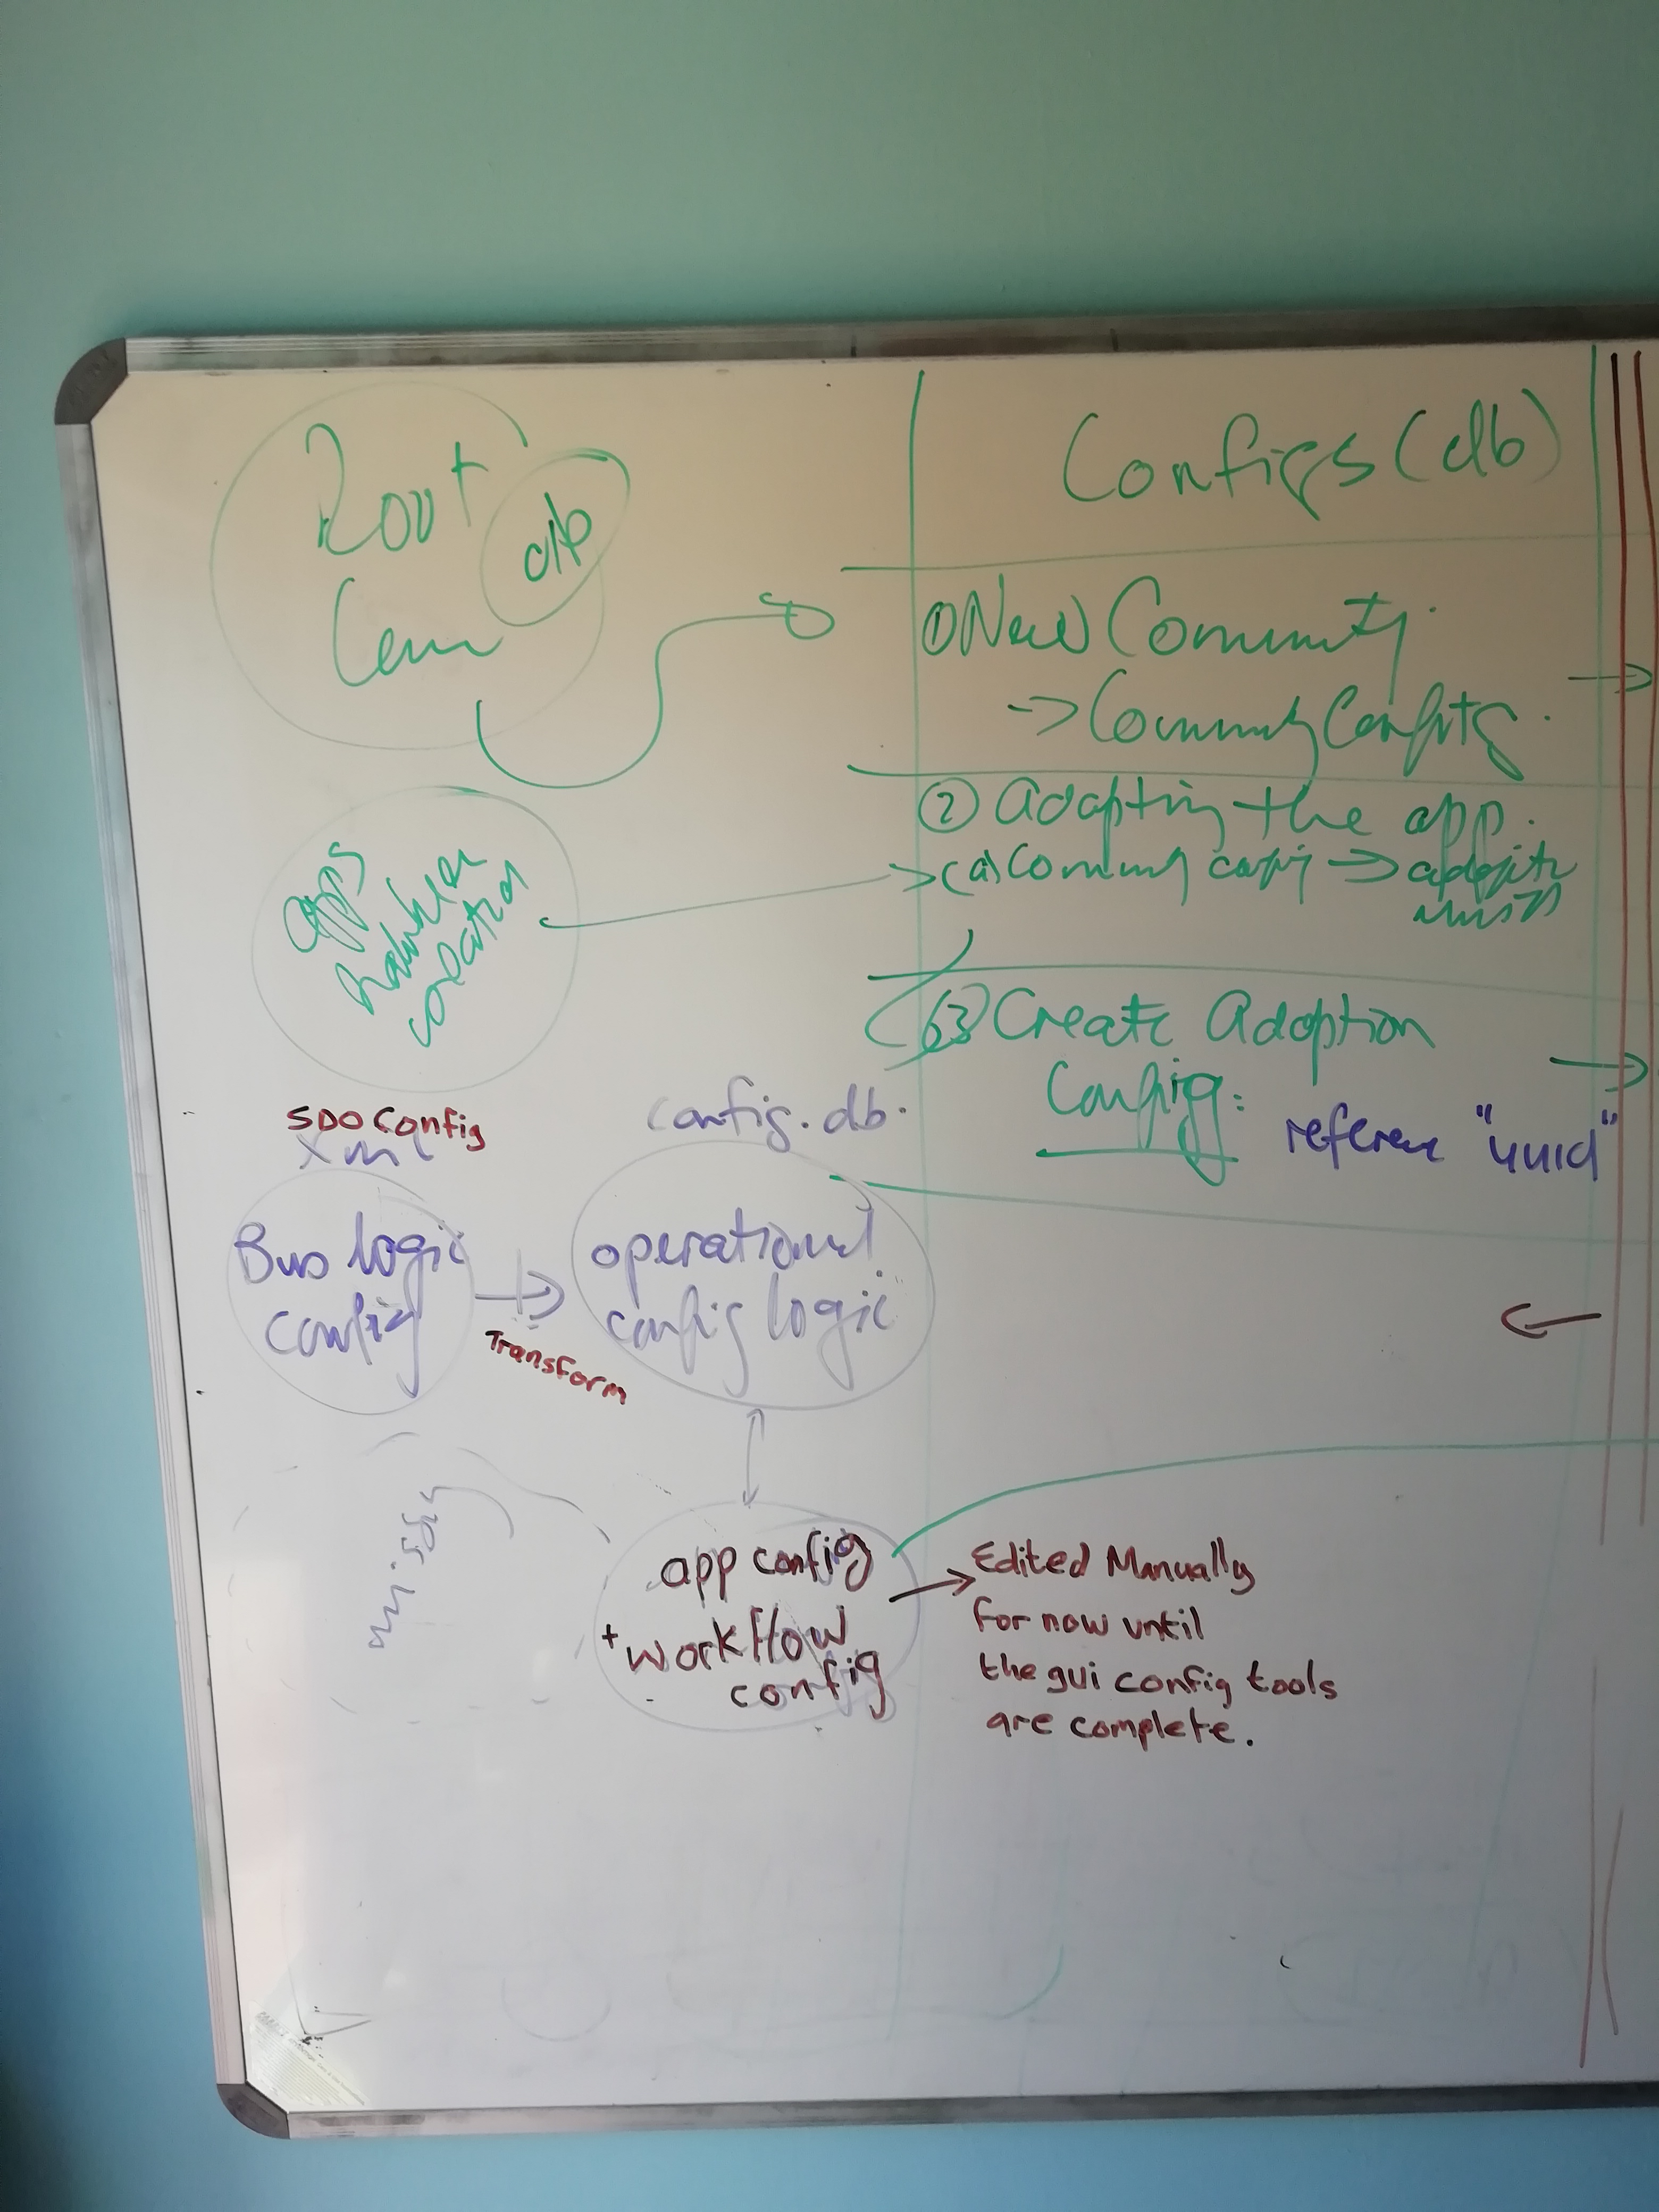 Root
db
Com
Configs (db)
① New Community
→ Community Configs.
② Adopting the app.
→ (a) Commun config → adopts
apps
creation
③ Create Adoption
Config:
reference "uuid"
SDO Config
xml
config.db.
Bus logic
config
Transform
operational
config logic
app config
+ workflow
config
Edited Manually
for now until
the gui config tools
are complete.